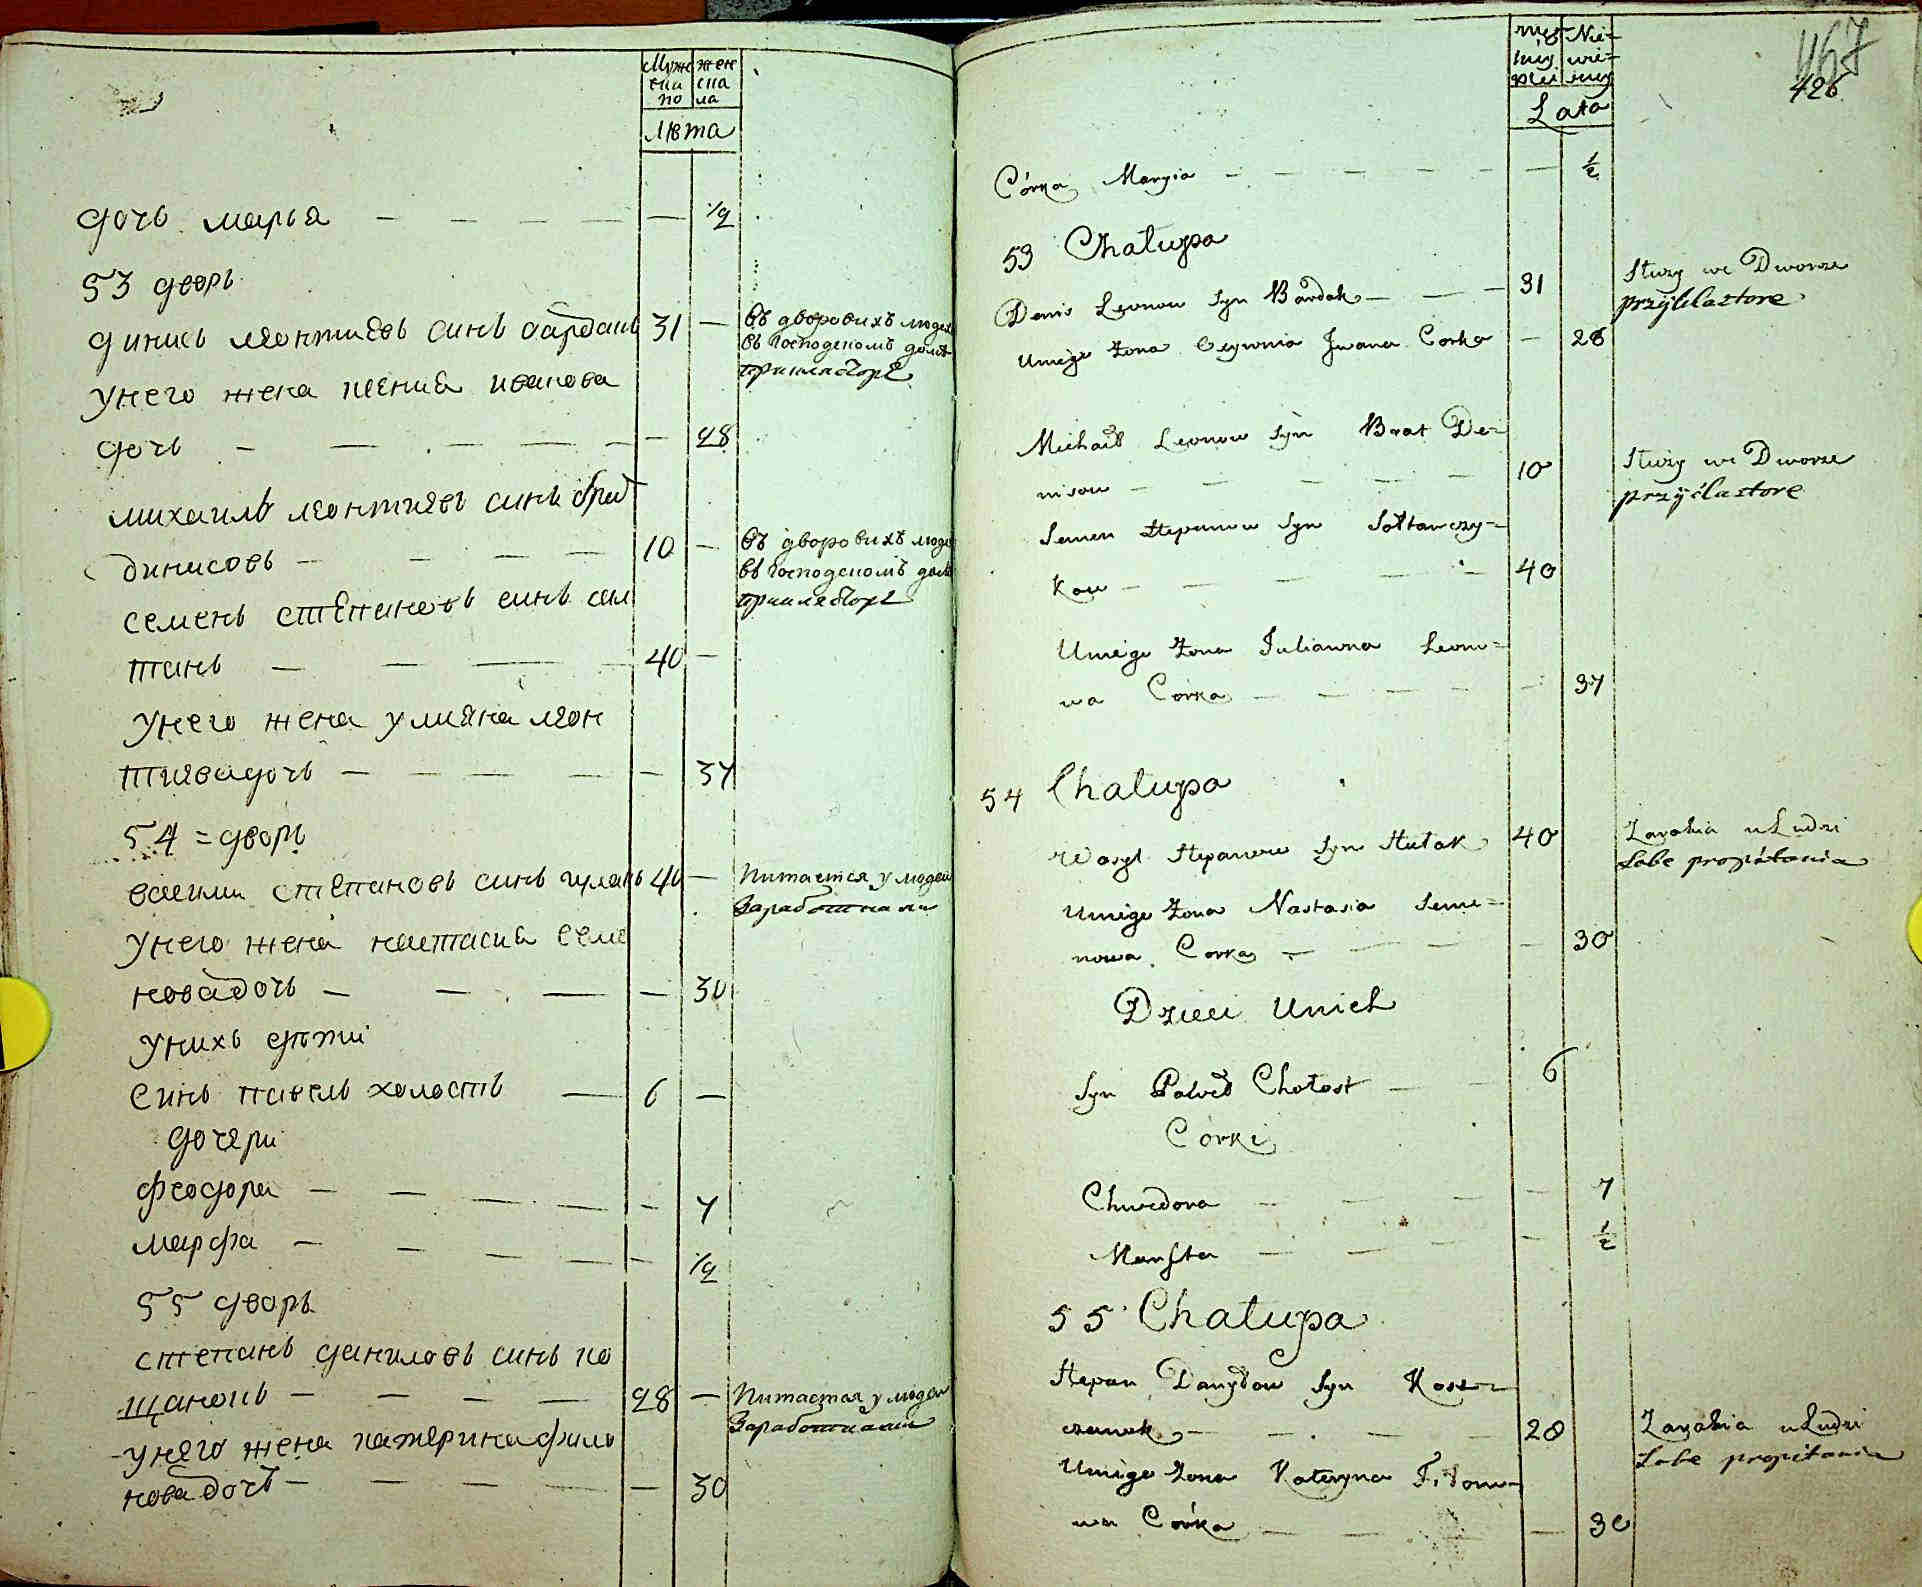 Муже
ска
го
жен
ска
ла
Лѣта
дочь марья — — — — — 1/2
53 дворъ
динисъ леонтиевъ синъ бардакъ 31 —
въ дворовихъ людех
въ господскомъ доме
унего жена ксения иванова
дочь — — — — — 28
михаилъ леонтиевъ синъ брат
динисовъ — — — — 10 —
въ дворовихъ люде
въ господскомъ дом
семенъ степановъ синъ сал
танъ — — — — 40 —
унего жена улияна леон
тиевадочь — — — — — 37
54 = дворъ
василии степановъ синъ гулакъ 40 —
Питается у людей
Заработками
унего жена настасия семе
новадочь — — — — 30
унихъ дѣти
синъ павелъ холостъ — 6 —
дочери
феодора — — — — — 7
марфа — — — — — 1/2
55 дворъ
степанъ даниловъ синъ ко
щанокъ — — — — 28 —
Питается у людей
Заработками
унего жена катерина фило
новадочь — — — — — 30
467
426
męz
Nie=
wie=
Lata
Córka Maryia — — — — — — 1/2
53 Chałupa
Denis Leonow Syn Bardak — — — 31
Służy we Dworze
Uniego żona Ksywnia Iwana Corka — 28
Michaiło Leonow Syn Brat De=
nisow — — — — — 10
Służy we Dworze
Semen Stepanow Syn Sołtanczy=
kow — — — — — 40
Uniego żona Julianna Leono=
wa Corka — — — — — 37
54 Chałupa
Wasyl Stepanow Syn Hułak 40
Zarabia u Ludzi
Uniego żona Nastasia Seme=
nowa Corka — — — — 30
Dzieci Unich
Syn Paweł Chołost — — 6
Córki
Chwedora — — — — 7
Marfta — — — — 1/2
55 Chałupa
Stepan Danyłow Syn Kosz=
czanok — — — — 28
Zarabia u Ludzi
Uniego żona Kateryna Filono=
wa Córka — — — — 30